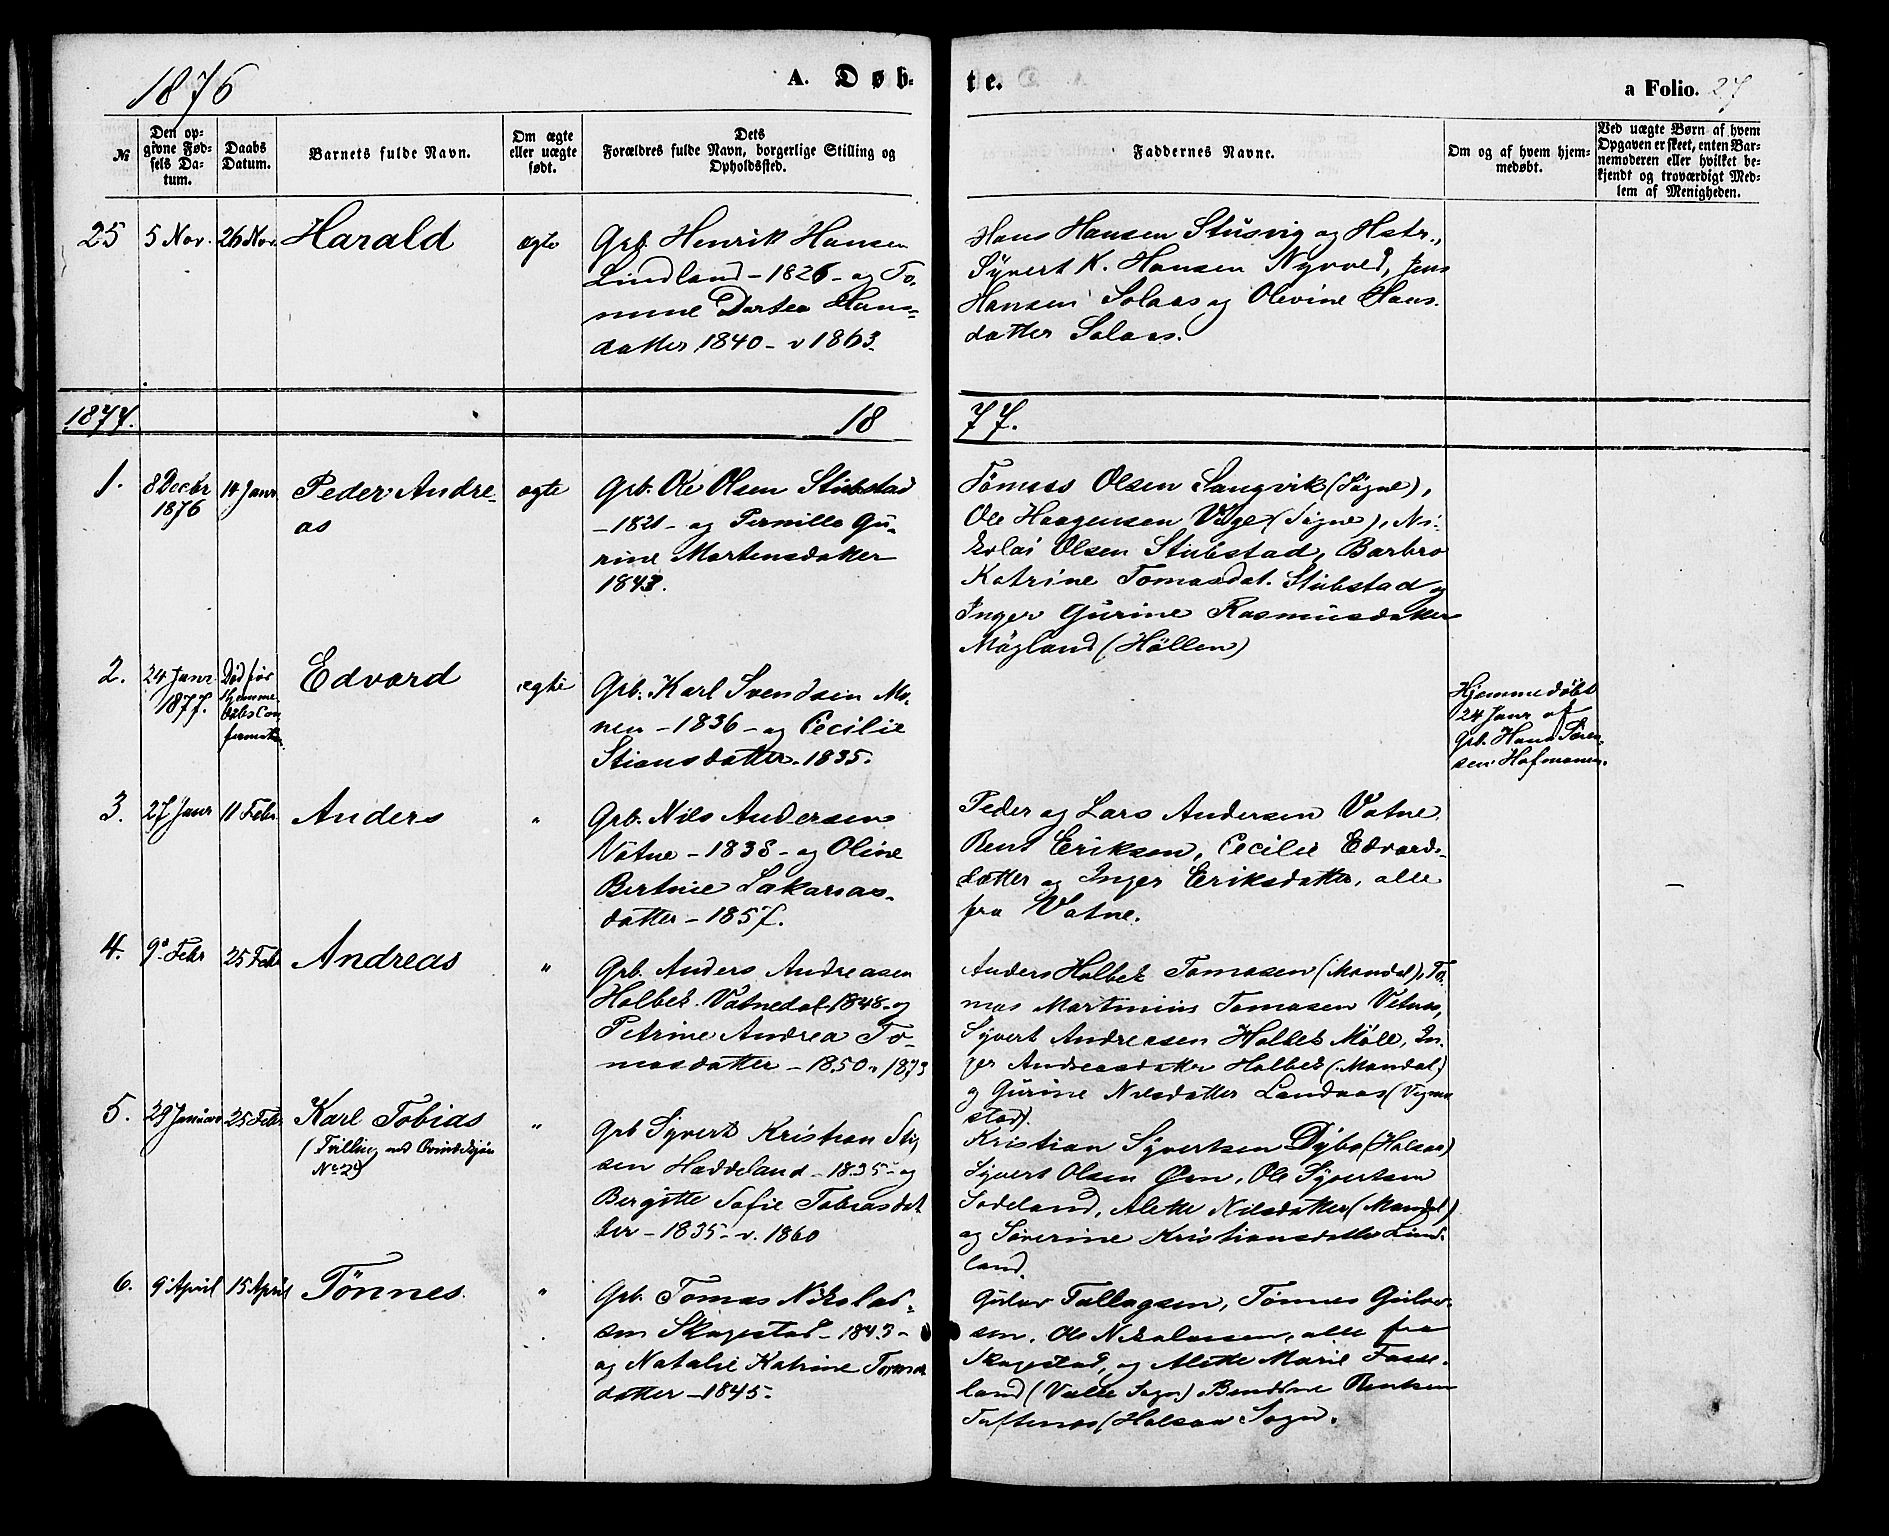 1876
A. Døb-
te.
a Folio. 27
№
Den op-
givne Fød-
sels Da-
tum.
Daabs
Datum.
Barnets fulde Navn.
Om ægte
eller uægte
født.
Dets
Forældres fulde Navn, borgerlige Stilling og
Opholdssted.
Faddernes Navne.
Om og af hvem hjem-
medøbt.
Ved uægte Børn af hvem
Opgaven er skeet, enten Bar-
nemoderen eller hvilket be-
kjendt og troværdigt Med-
lem af Menigheden.
25
5 Nov.
26 Nov.
Harald
ægte
Grb. Henrik Hansen
Lindland - 1826 - og To-
mine Dortea Hans-
datter 1840 - v 1863.
Hans Hansen Stusvig og Hstr.,
Syvert K. Hansen Nyvoed, Jens
Hansen Solaas og Olevine Hans-
datter Solaas.
1877.
18
77.
1.
8 Decbr
1876
14 Janr
Peder Andre-
as
ægte
Grb. Ole Olsen Stubstad
- 1821 - og Pernille Gu-
rine Mortensdatter
1843.
Tomass Olsen Langvik (Søgne),
Ole Haagensen Vige (Sogne), Ni-
kolai Olsen Stubstad, Barbro
Katrine Tomasdat. Stubstad og
Inger Gurine Rasmusdatter
Møgland (Høllen)
2.
24 Janr
1877.
Død før
Hjemme
daabs Con
firmation
Edvard
ægte
Grb. Karl Svendsen Mo-
nen - 1836 - og Cecilie
Stiansdatter - 1835.
Hjemmedøbt
24 Janr af
Grb. Hans Søren-
sen Hofmanns.
3.
27 Janr
11 Febr
Anders
"
Grb. Nils Andersen
Vatne - 1838 - og Oline
Bertine Sakarias-
datter - 1857.
Peder og Lars Andersen Vatne
Bent Eriksen, Cecilie Edvards-
datter og Inger Eriksdatter, alle
fra Vatne.
4.
9 Febr
25 Feb
Andreas
"
Grb. Anders Andreasen
Holbek Vatnedal - 1848 - og
Petrine Andrea To-
masdatter - 1850 v 1873
Anders Holbek Tomasen (Mandal), To-
mas Martinius Tomasen Vatne,
Syvert Andreasen Holbek Møll, In-
ger Andreasdatter Holbek (Mandal)
og Gurine Nilsdatter Landaas (Vigmo-
stad).
5.
29 Januar
25 Febr
Karl Tobias
(Tvilling med Qvindekjøn
No 2)
"
Grb Syvert Kristian Stig
sen Haddeland - 1835 - og
Bergitte Sofie Tobiasdat
ter - 1835 - v. 1860
Kristian Syvertsen Dybo (Halsaa)
Syvert Olsen Øen, Ole Syvertsen
Sodeland, Alette Nilsdatter (Mandal)
og Severine Kristiansdatter Lind-
land.
6.
9 April
15 April
Tönnes
"
Grb. Tomas Nikolai-
sen Skagestad - 1843 -
og Natalie Katrine Tomas
datter - 1845 -
Gulov Tallagsen, Tönnes Gulov-
sen, Ole Nikolaisen, alle fra
Skagestad, og Alette Marie Fasse-
land (Valle Sogn) Bendtine Bentsen
Tuftenes (Halsaa Sogn.